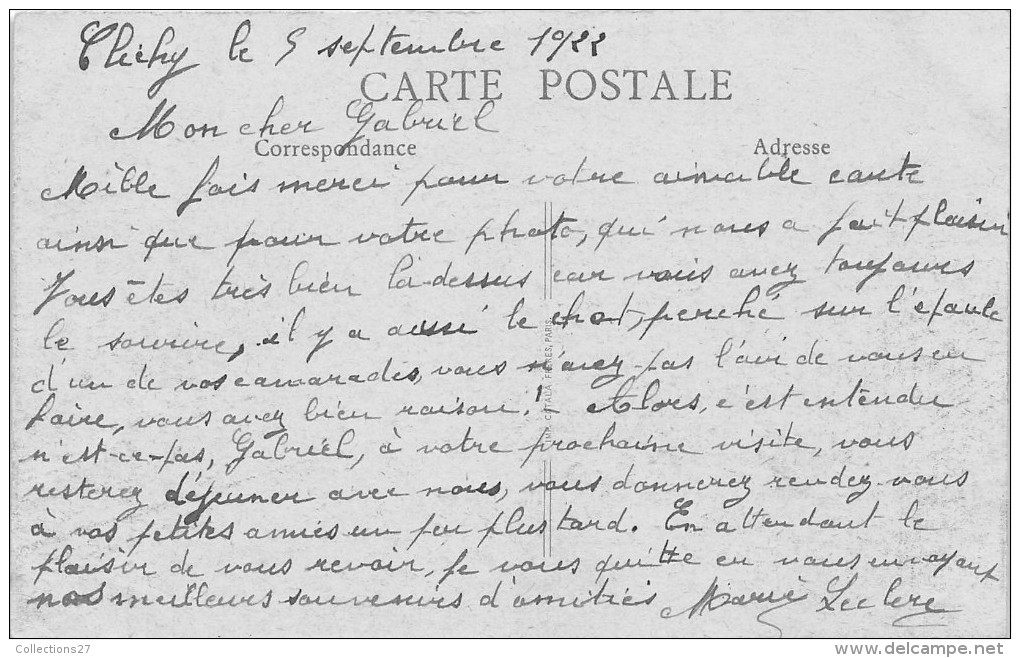 Clichy le 5 septembre 1922
CARTE POSTALE
Mon cher Gabriel
Correspondance
Adresse
Mille fois merci pour votre aimable carte
ainsi que pour votre photo, qui nous a fait plaisir
Vous êtes très bien là-dessus car vous avez toujours
le sourire, il y a aussi le chat, perché sur l'épaule
d'un de vos camarades, vous n'avez pas l'air de vous en
faire, vous avez bien raison! Alors, c'est entendu
n'est-ce-pas, Gabriel, à votre prochaine visite, vous
resterez déjeuner avec nous, vous donnerez rendez-vous
à vos petites amies un peu plus tard. En attendant le
plaisir de vous revoir, je vous quitte en vous envoyant
nos meilleurs souvenirs d'amitiés Marie Leclerc
CATALA FRÈRES, PARIS
Collections27
delcampe.net